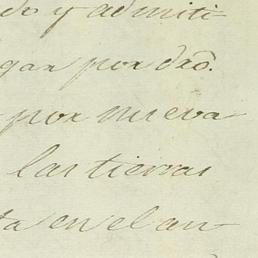 do y admiti
gar por dro.
por nueva
las tierras
ta en el an